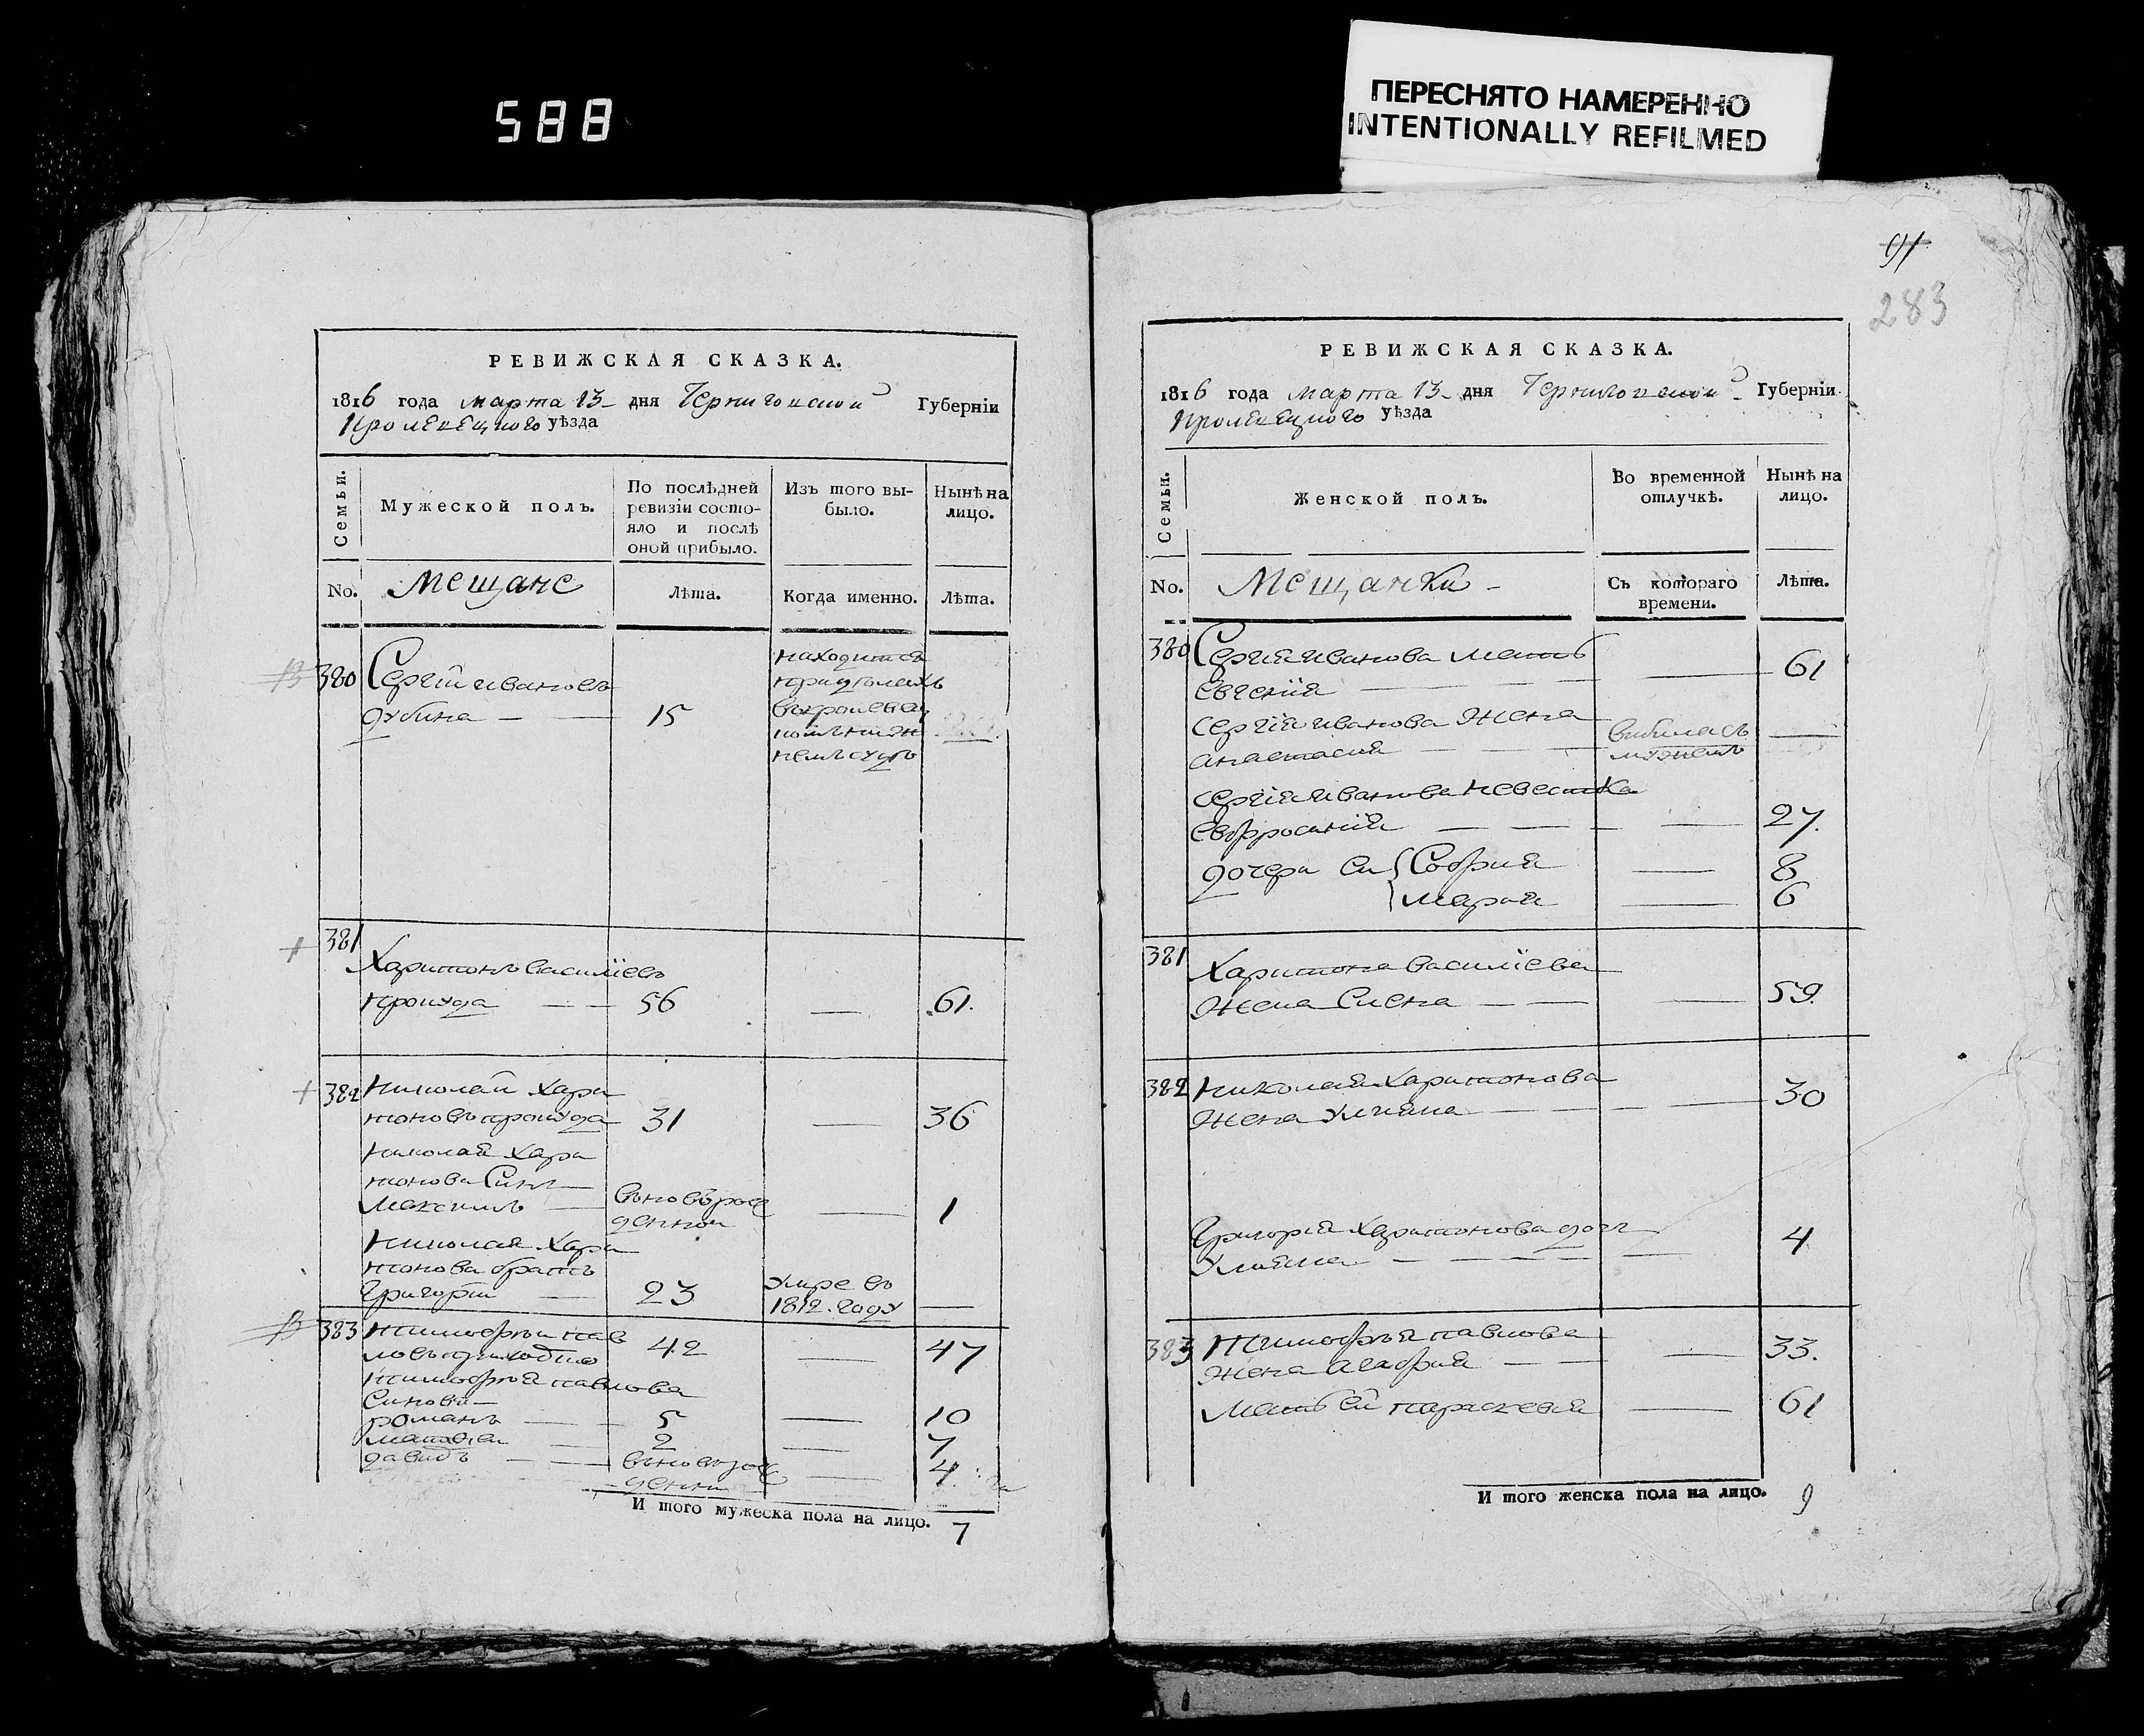 588
ПЕРЕСНЯТО НАМЕРЕННО
INTENTIONALLY REFILMED
РЕВИЖСКАЯ СКАЗКА.
1816 года марта 13 дня Черниговской Губернiи
уѣзда
Семьи.
Мужеской полъ.
По послѣдней
ревизiи состо-
яло и послѣ
оной прибыло.
Изъ того вы-
было.
Нынѣ на
лицо.
No. Мещане
Лѣта.
Когда именно.
Лѣта.
380 Сергiй Ивановъ
дубина — 15
находится
381
Харитонъ василiевъ
56 — 61.
382 Николай Хари
тоновъ 31 — 36
Николая Хари
тонова Синъ
Максимъ — вновърож
денной — 1
Николая Хари
тонова братъ
Григорiй — 23 умре въ
1812. году —
383 Тимофѣй пав
ловъ 42 — 47
Тимофѣя павлова
Синовя
романъ — 5 — 10
матвѣй — 2 — 7
давидъ — вновърож — 4
денни
И того мужеска пола на лицо. 7
91
283
РЕВИЖСКАЯ СКАЗКА.
1816 года марта 13 дня Черниговской Губернiи.
уѣзда
Семьи.
Женской полъ.
Во временной
отлучкѣ.
Нынѣ на
лицо.
No. Мещанки
Съ котораго
времени.
Лѣта.
380 Сергiя иванова мать
Евгенiя — 61
Сергiя иванова жена
анастасия —
мужемъ —
Сергiя иванова невестка
Евфросинiя — 27.
дочери Ея София — 8
Мария — 6
381 Харитона василiева
жена Елена — 59.
382 Николая Харитонова
жена Улияна — 30
Григория Харитонова доч
Улияна — 4
383 Тимофѣя павлова
жена Агафия — 33.
Мать Ей параскевия — 61
И того женска пола на лицо. 9